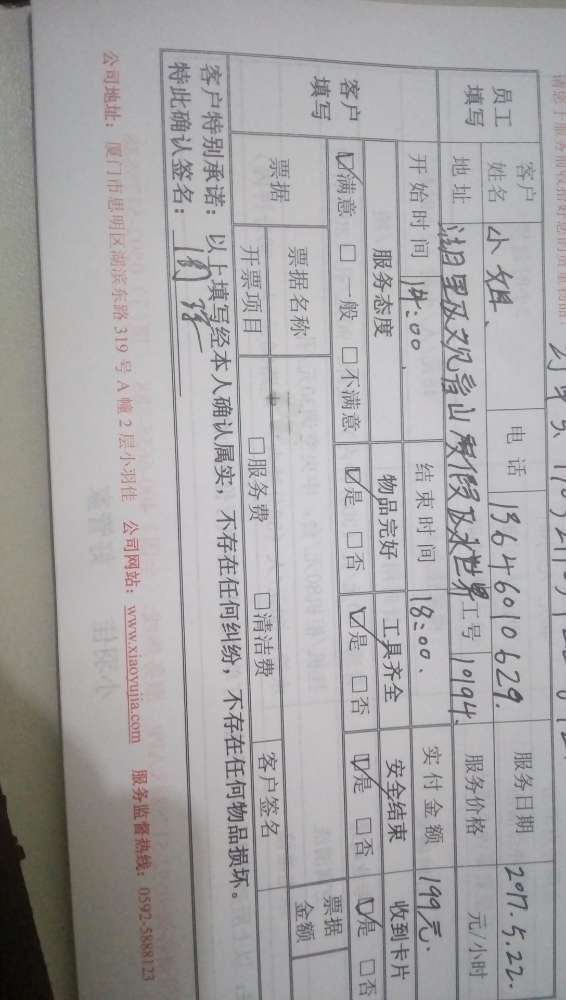 员工填写 客户姓名 小姐、 电话 13646010629. 服务日期 2017.5.22.
地址 湖里区观音山度假区水世界 工号 10194. 服务价格 元/小时
客户填写 开始时间 14:00. 结束时间 18:00、 实付金额 199元.
服务态度 物品完好 工具齐全 安全结束 收到卡片
☑满意 □一般 □不满意 ☑是 □否 ☑是 □否 ☑是 □否 ☑是 □否
票据 票据名称 票据金额
开票项目 □服务费 □清洁费 客户签名
客户特别承诺：以上填写经本人确认属实，不存在任何纠纷，不存在任何物品损坏。
特此确认签名：
公司地址：厦门市思明区湖滨东路 319 号 A 幢 2 层小羽佳 公司网站：www.xiaoyujia.com 服务监督热线：0592-5888123